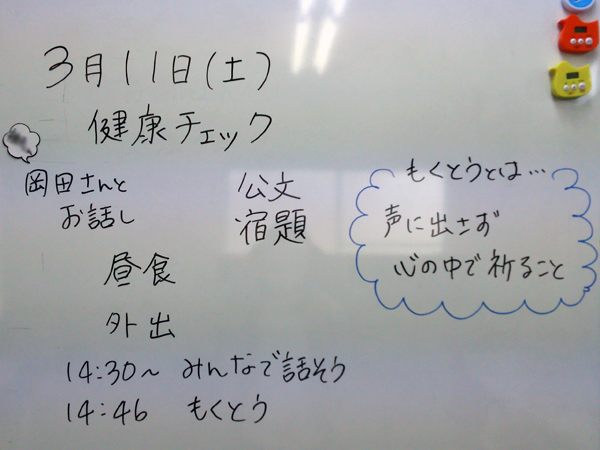 3月11日(土)
健康チェック
岡田さんと
お話し
公文
宿題
昼食
外出
14:30～ みんなで話そう
14:46 もくとう
もくとうとは…
声に出さず
心の中で祈ること